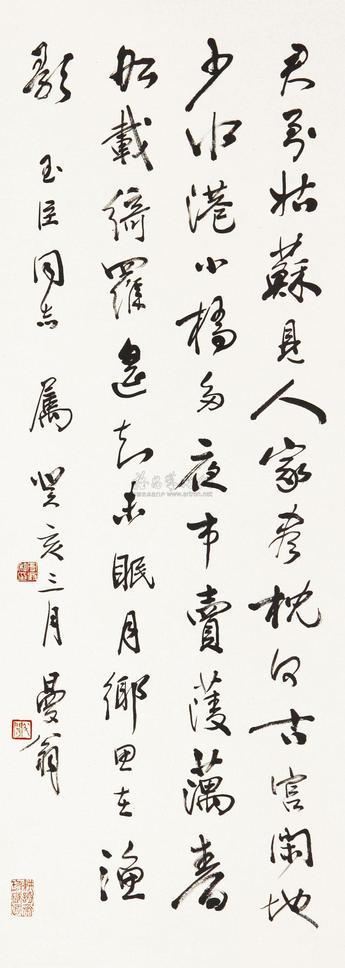 君到姑蘇見人家尽枕河古宮閑地
少水港小橋多夜市賣菱藕春
船載綺羅遥知未眠月鄉思在漁
歌 玉臣同志 屬 癸亥三月 曼翁